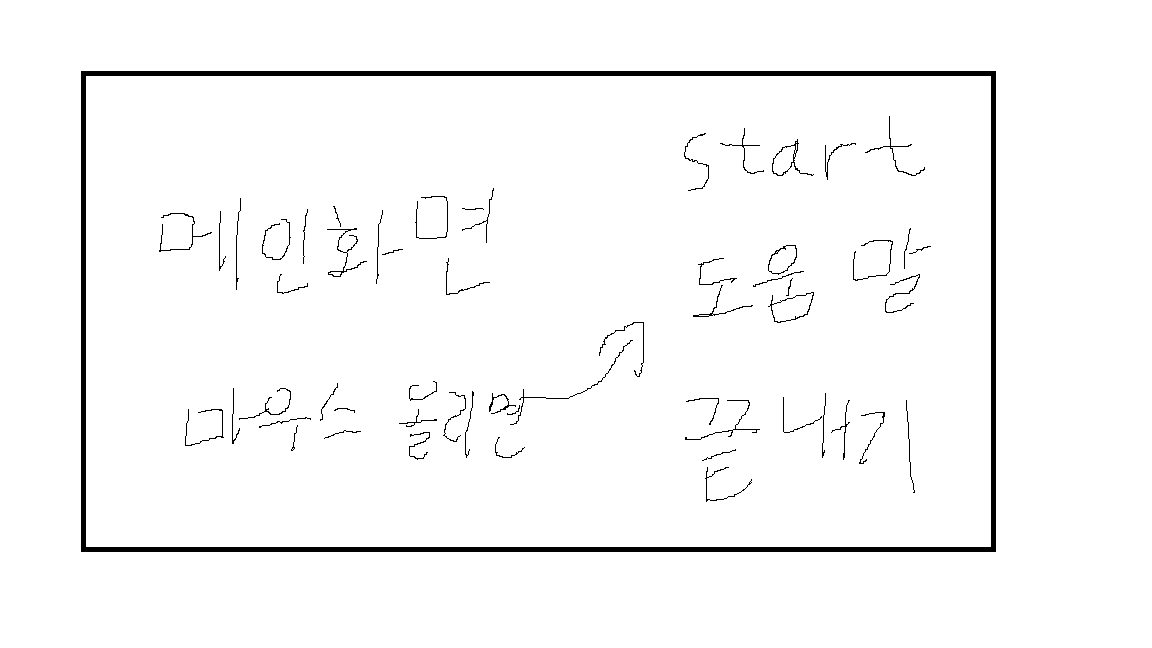 메인화면
마우스 올리면
start
도움말
끝내기